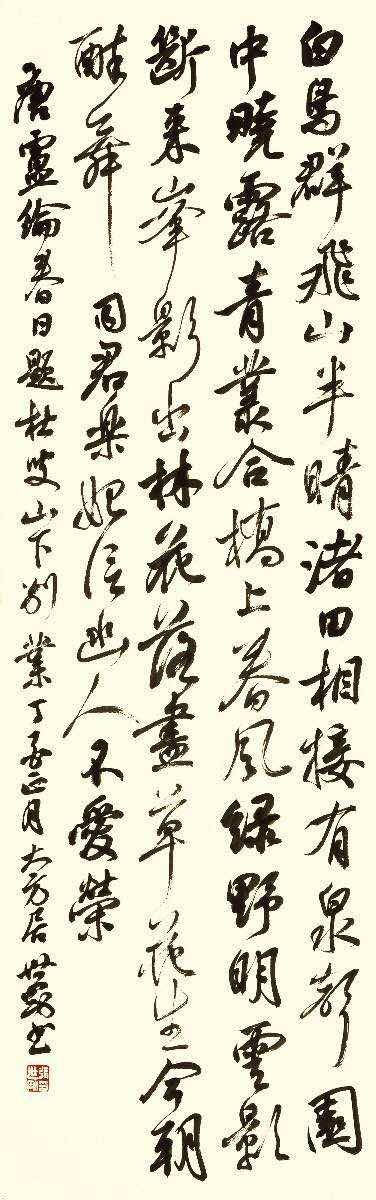 白鳥群飛山半晴渚田相接有泉聲園
中曉露青叢合橋上春風綠野明雲影
斷來峯影出林花落盡草花生今朝
醉舞同君樂始信幽人不愛榮
唐盧綸春日題杜叟山下別業丁亥正月大方居世书